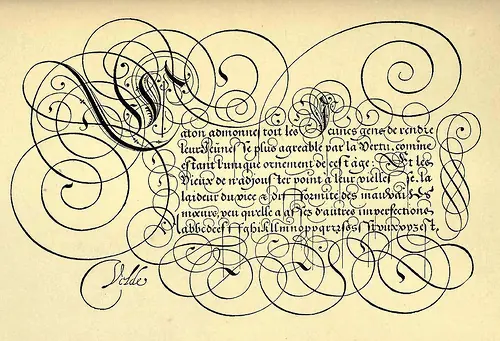 Caton admonnes toit les Jeunes gens de rendre
leur Jeunesse plus agreable par la Vertu, comme
estant l'unique ornement de cest age: Et les
Vieux de n'adjouster point à leur viellesse, la
laideur du vice & difformite des mauvaises
moeurs, veu qu'elle a assez d'autres imperfections
aabbcdeefffgghikllmnoppqrrsss
Velde